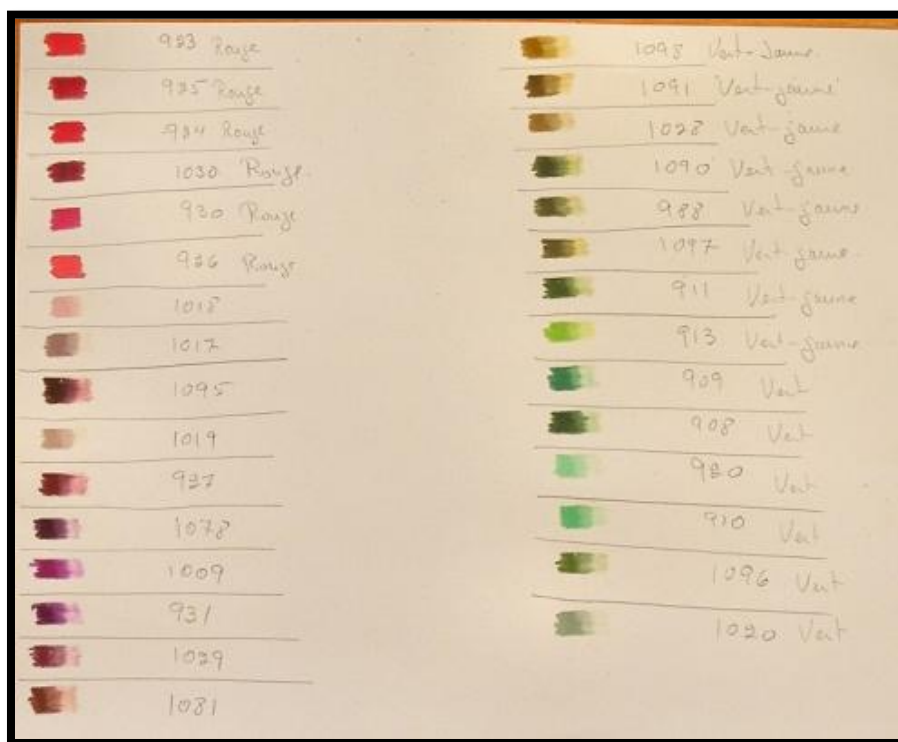 923 Rouge
925 Rouge
924 Rouge
1030 Rouge.
930 Rouge
926 Rouge
1018
1017
1095
1019
937
1078
1009
931
1029
1081
1098 Vert-Jaune.
1091 Vert-jaune
1028 Vert-jaune
1090 Vert-jaune
988 Vert-jaune
1097 Vert-jaune.
911 Vert-jaune
913 Vert-jaune
909 Vert
908 Vert
920 Vert
910 Vert
1096 Vert
1020 Vert